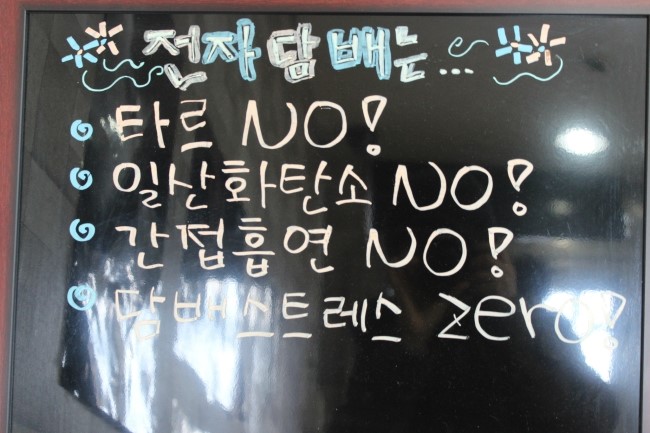 전자담배는...
타르 NO!
일산화탄소 NO!
간접흡연 NO!
담배스트레스 zero!